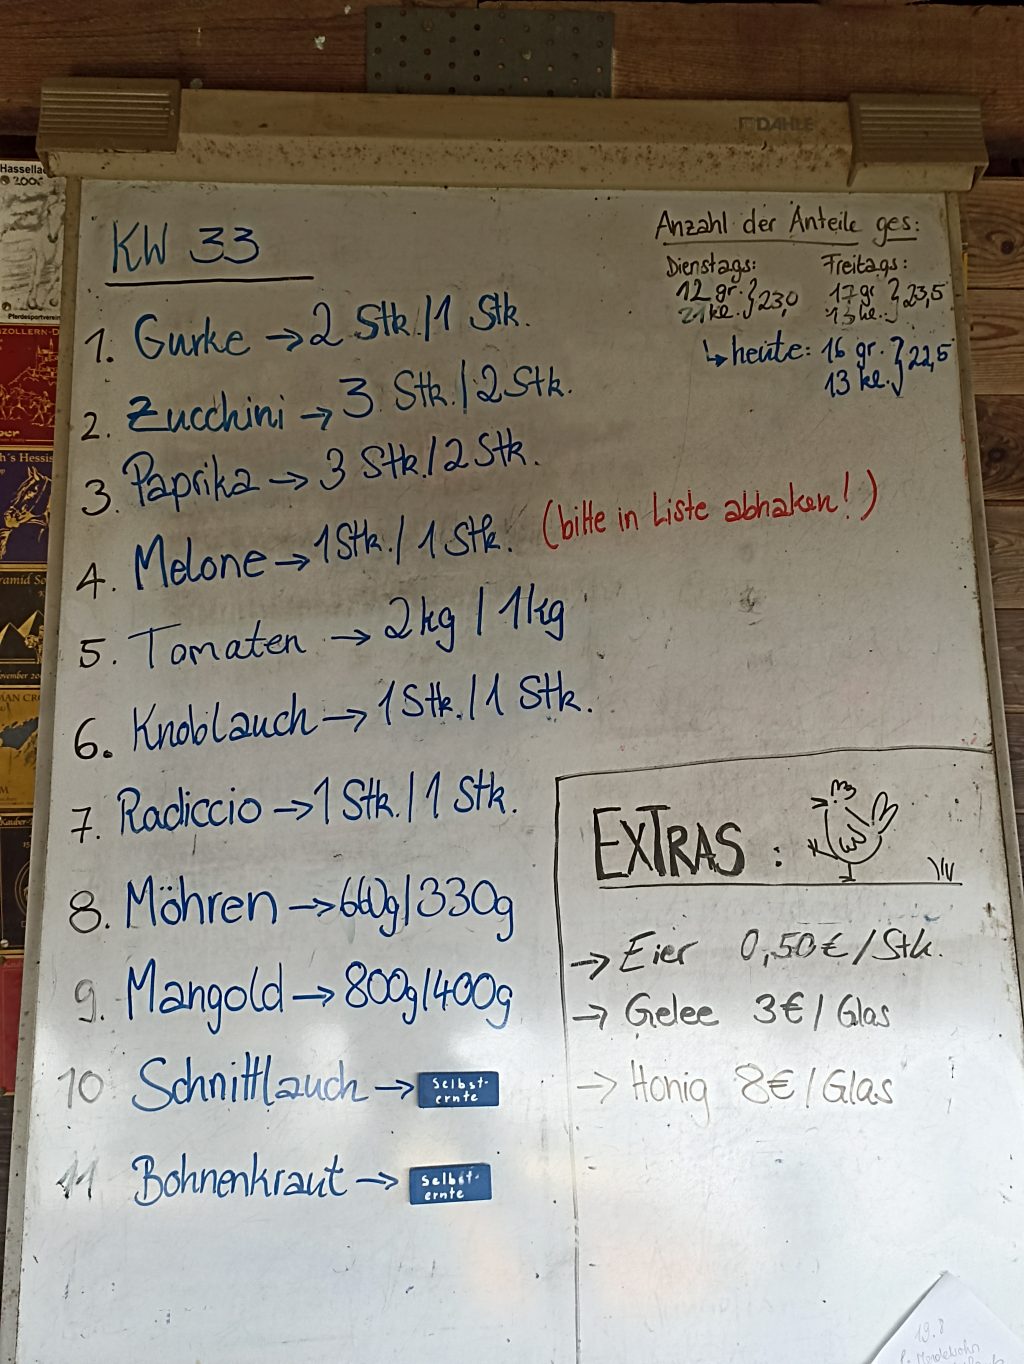 DAHLE
Hassella
2006
Pferdesportverein
KW 33
Anzahl der Anteile ges:
Dienstags: Freitags:
12 gr. 17 gr.
21 kl. } 23,0 13 kl. } 23,5
↳ heute: 16 gr.
13 kl. } 22,5
1. Gurke → 2 Stk./1 Stk.
2. Zucchini → 3 Stk./2 Stk.
3. Paprika → 3 Stk./2 Stk.
4. Melone → 1 Stk./1 Stk. (bitte in Liste abhaken!)
5. Tomaten → 2kg / 1kg
6. Knoblauch → 1 Stk./1 Stk.
7. Radiccio → 1 Stk./1 Stk.
8. Möhren → 660g/330g
9. Mangold → 800g/400g
10 Schnittlauch → Selbst-
ernte
11 Bohnenkraut → Selbst-
ernte
EXTRAS:
→ Eier 0,50€/Stk.
→ Gelee 3€/Glas
→ Honig 8€/Glas
19.8